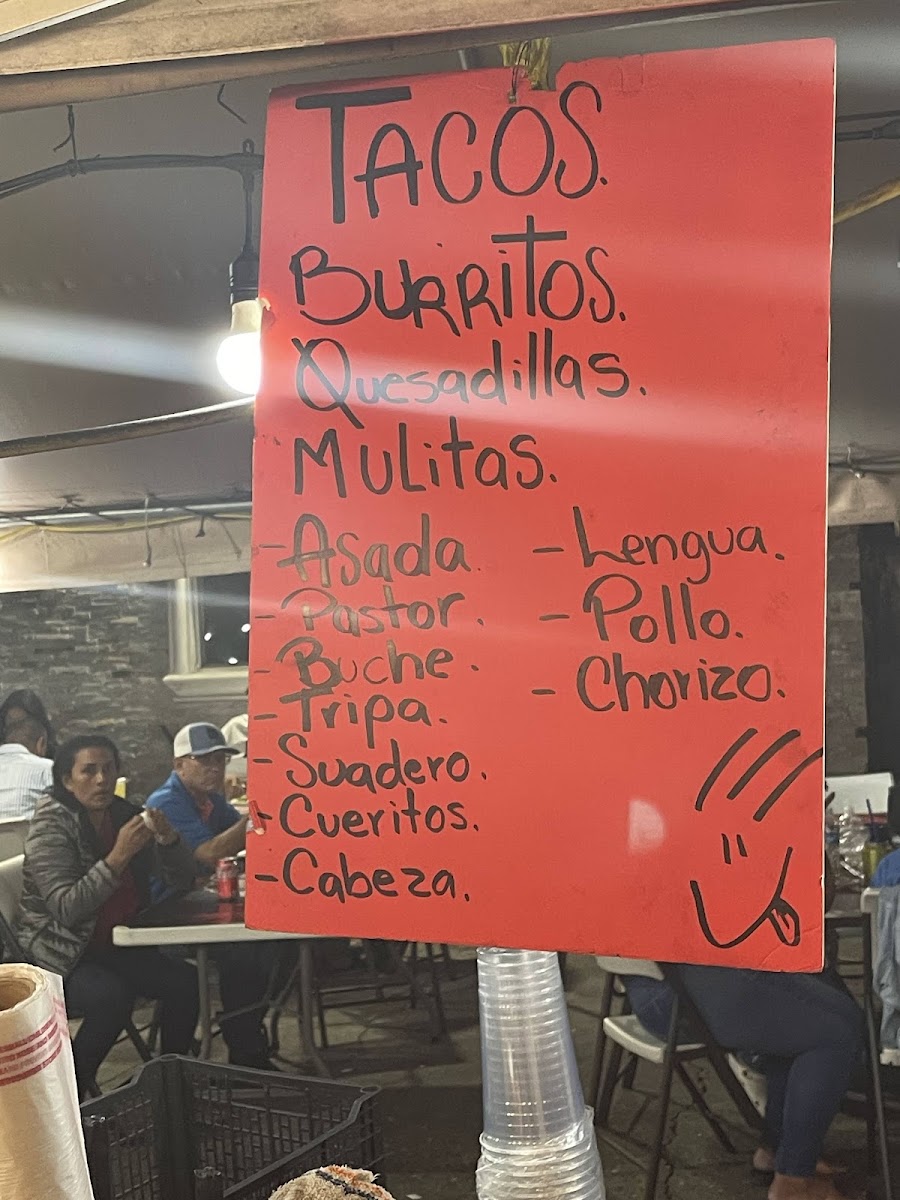 TACOS.
BURRITOS.
Quesadillas.
MULitas.
-Asada.
-Pastor.
-Buche.
-Tripa.
-Suadero.
-Cueritos.
-Cabeza.
-Lengua.
-Pollo.
-Chorizo.